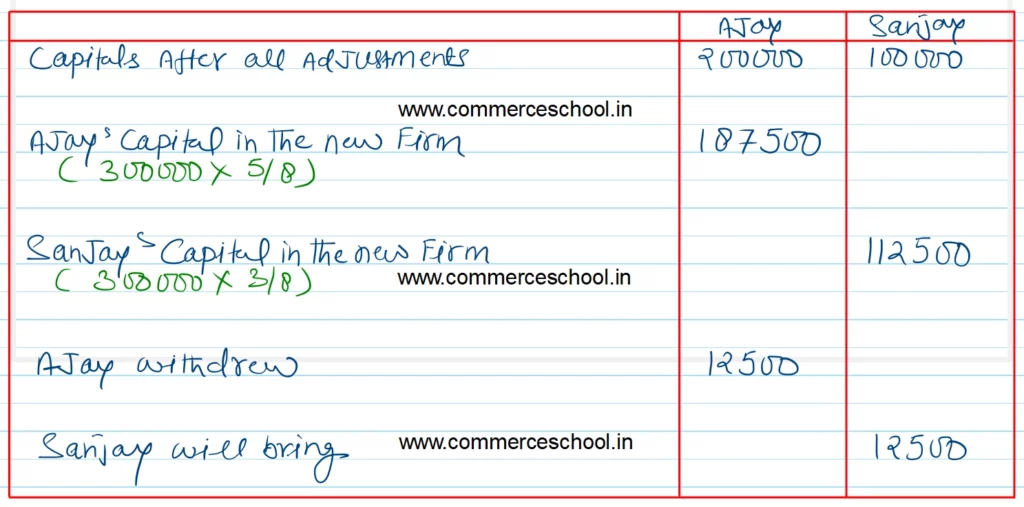 AJay Sanjay
Capitals After all Adjustments 200000 100000
www.commerceschool.in
AJay's Capital in the new Firm 187500
( 300000 × 5/8 )
SanJay's Capital in the new Firm 112500
( 300000 × 3/8 ) www.commerceschool.in
AJay withdrew 12500
Sanjay will bring www.commerceschool.in 12500